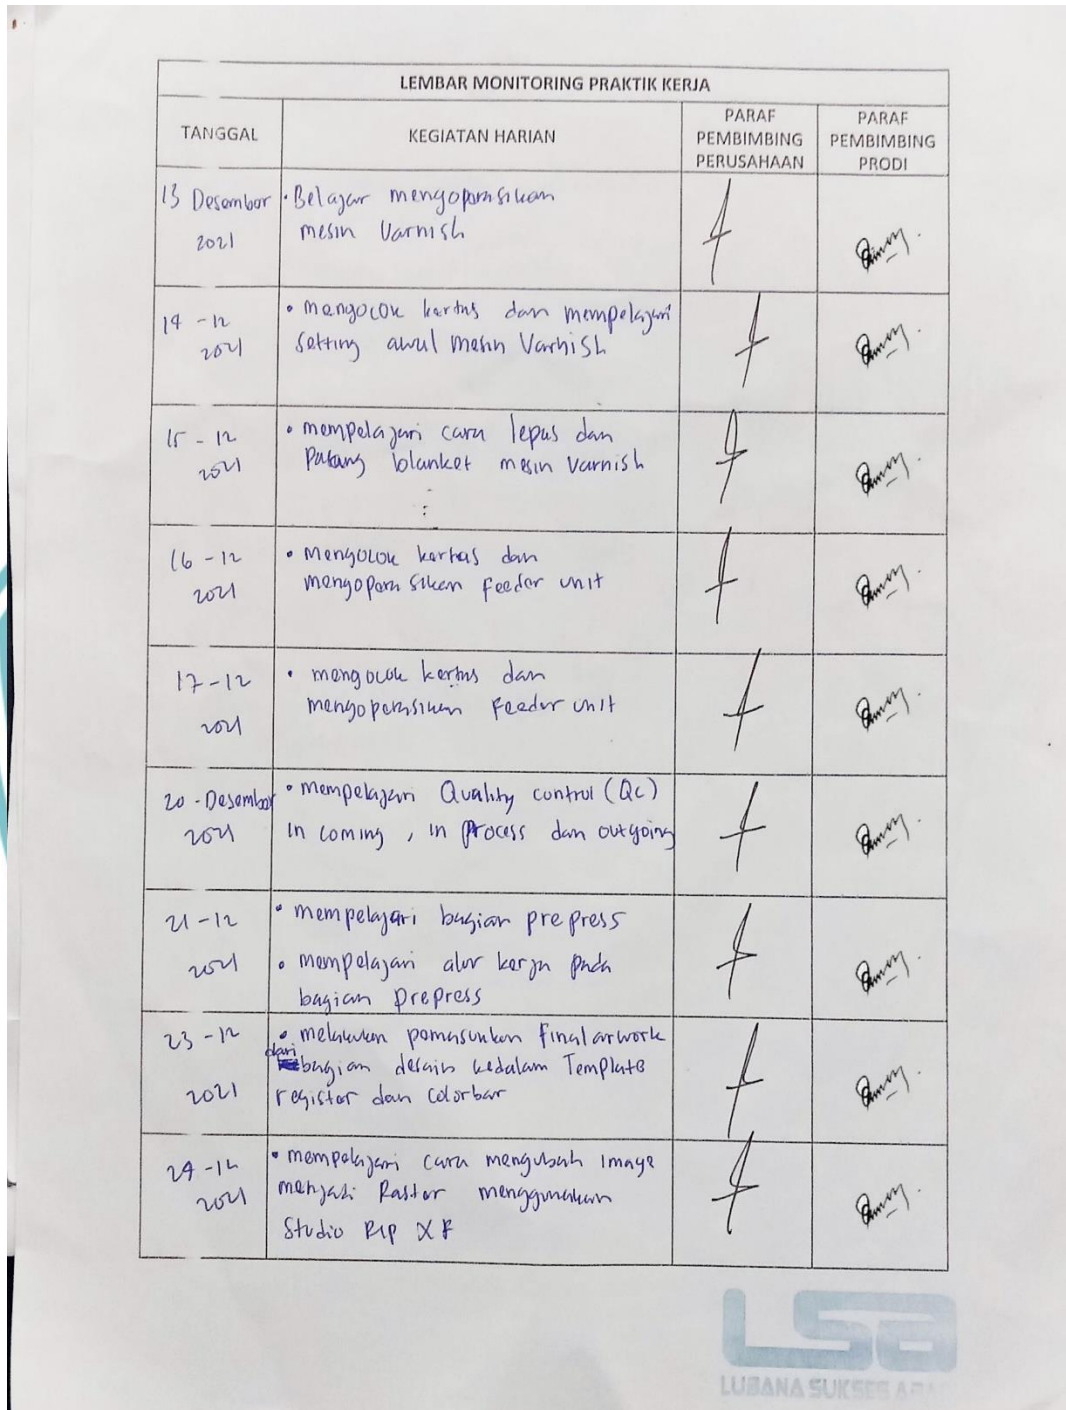 LEMBAR MONITORING PRAKTIK KERJA
TANGGAL
KEGIATAN HARIAN
PARAF
PEMBIMBING
PERUSAHAAN
PARAF
PEMBIMBING
PRODI
13 Desember
2021
• Belajar mengoperasikan
mesin Varnish
14 - 12
2021
• mengocok kertas dan mempelajari
setting awal mesin Varnish
15 - 12
2021
• mempelajari cara lepas dan
Pasang blanket mesin varnish
16 - 12
2021
• Mengocok kertas dan
mengoperasikan feeder unit
17 - 12
2021
• mengocok kertas dan
mengoperasikan Feeder unit
20 - Desember
2021
• mempelajari Quality control (Qc)
in coming , in process dan outgoing
21 - 12
2021
• mempelajari bagian prepress
• mempelajari alur kerja pada
bagian prepress
23 - 12
2021
• melakukan pemasukan final arwork
dari
bagian desain kedalam Template
register dan Colorbar
24 - 12
2021
• mempelajari cara mengubah image
menjadi Raster menggunakan
Studio RIP XF
LSA
LUBANA SUKSES